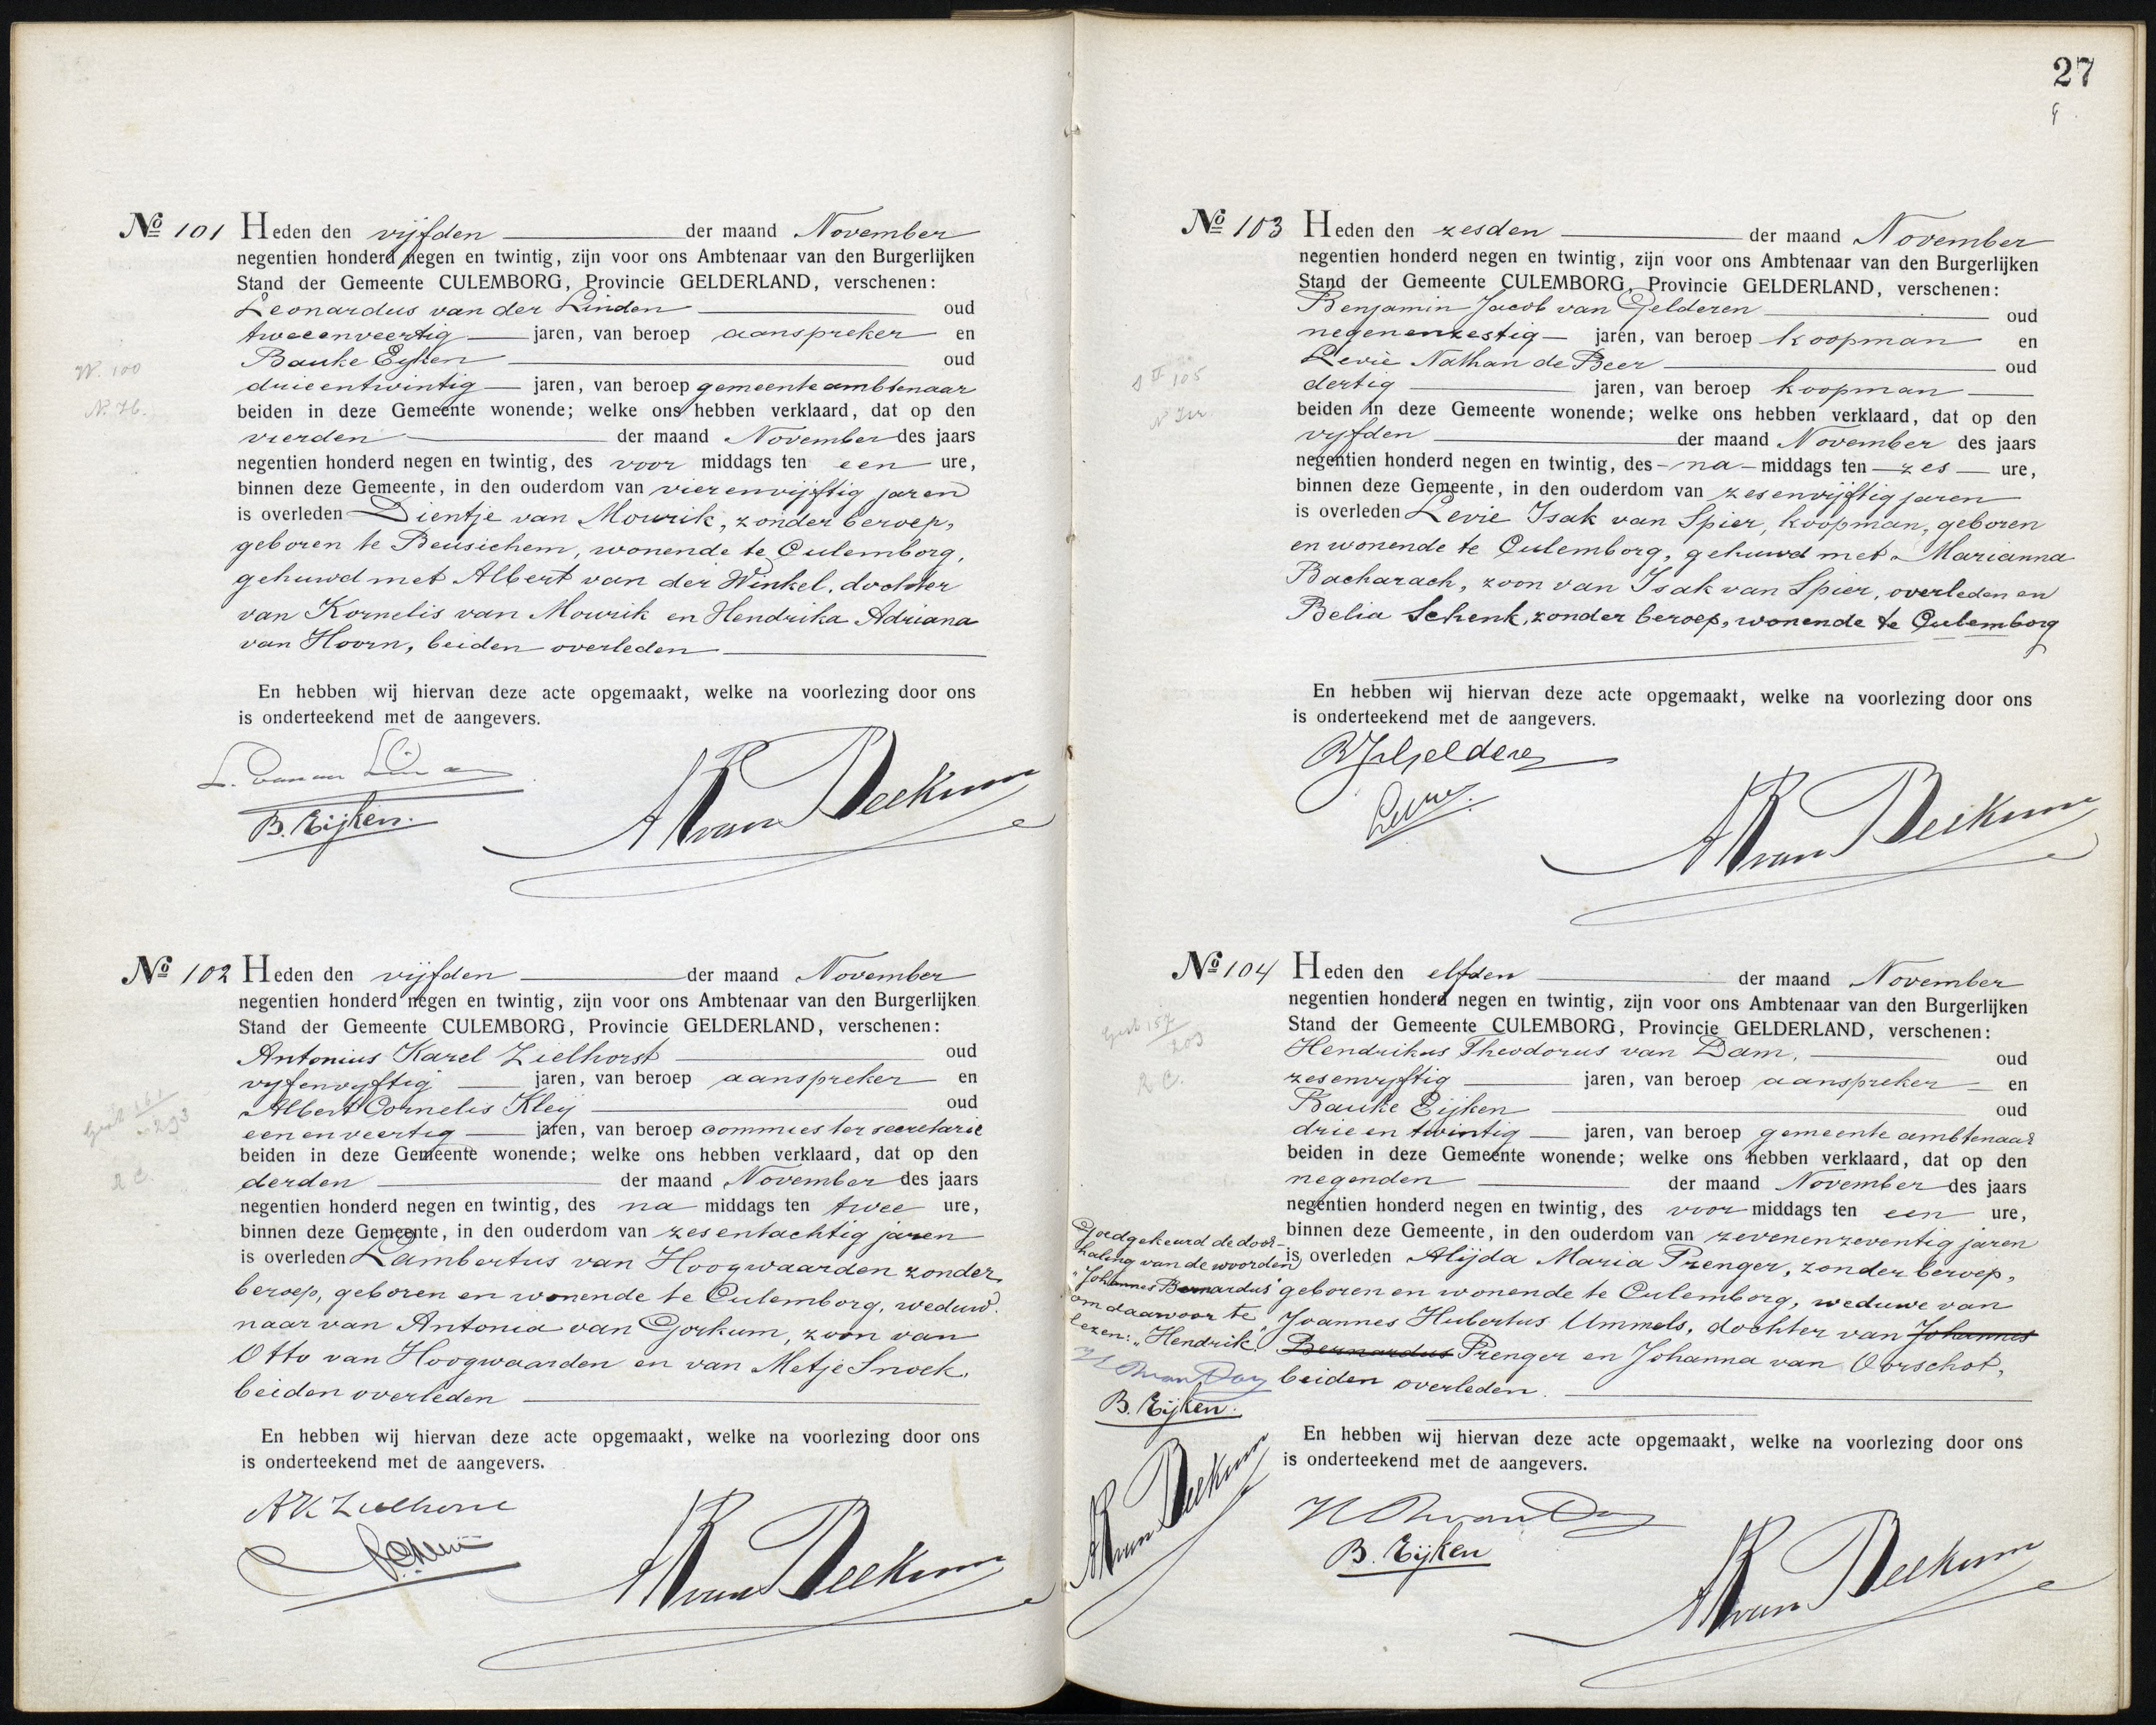 27
№ 101 Heden den vijfden der maand November
negentien honderd negen en twintig, zijn voor ons Ambtenaar van den Burgerlijken
Stand der Gemeente CULEMBORG, Provincie GELDERLAND, verschenen:
Leonardus van der Linden oud
tweeenveertig jaren, van beroep aanspreker en
Bauke Eijken oud
drieentwintig jaren, van beroep gemeenteambtenaar
beiden in deze Gemeente wonende; welke ons hebben verklaard, dat op den
vierden der maand November des jaars
negentien honderd negen en twintig, des voor middags ten een ure,
binnen deze Gemeente, in den ouderdom van vierenvijftig jaren
is overleden Dientje van Mourik, zonder beroep,
geboren te Beusichem, wonende te Culemborg,
gehuwd met Albert van der Winkel, dochter
van Kornelis van Mourik en Hendrika Adriana
van Hoorn, beiden overleden
En hebben wij hiervan deze acte opgemaakt, welke na voorlezing door ons
is onderteekend met de aangevers.
B. Eijken.
W. 100
№ 102 Heden den vijfden der maand November
negentien honderd negen en twintig, zijn voor ons Ambtenaar van den Burgerlijken
Stand der Gemeente CULEMBORG, Provincie GELDERLAND, verschenen:
Antonius Karel Zielhorst oud
vijfenvijftig jaren, van beroep aanspreker en
Albert Cornelis Kleij oud
eenenveertig jaren, van beroep commies ter secretarie
beiden in deze Gemeente wonende; welke ons hebben verklaard, dat op den
derden der maand November des jaars
negentien honderd negen en twintig, des na middags ten twee ure,
binnen deze Gemeente, in den ouderdom van zesentachtig jaren
is overleden Lambertus van Hoogwaarden zonder
beroep, geboren en wonende te Culemborg, weduw-
naar van Antonia van Gorkum, zoon van
Otto van Hoogwaarden en van Metje Snoek,
beiden overleden
En hebben wij hiervan deze acte opgemaakt, welke na voorlezing door ons
is onderteekend met de aangevers.
R C.
№ 103 Heden den zesden der maand November
negentien honderd negen en twintig, zijn voor ons Ambtenaar van den Burgerlijken
Stand der Gemeente CULEMBORG, Provincie GELDERLAND, verschenen:
Benjamin Jacob van Gelderen oud
negenenzestig jaren, van beroep koopman en
Levie Nathan de Beer oud
dertig jaren, van beroep koopman
beiden in deze Gemeente wonende; welke ons hebben verklaard, dat op den
vijfden der maand November des jaars
negentien honderd negen en twintig, des na middags ten zes ure,
binnen deze Gemeente, in den ouderdom van zesenvijftig jaren
is overleden Levie Isak van Spier, koopman, geboren
en wonende te Culemborg, gehuwd met Marianna
Bacharach, zoon van Isak van Spier, overleden en
Belia Schenk, zonder beroep, wonende te Culemborg
En hebben wij hiervan deze acte opgemaakt, welke na voorlezing door ons
is onderteekend met de aangevers.
№ 104 Heden den elfden der maand November
negentien honderd negen en twintig, zijn voor ons Ambtenaar van den Burgerlijken
Stand der Gemeente CULEMBORG, Provincie GELDERLAND, verschenen:
Hendrikus Theodorus van Dam, oud
zesenvijftig jaren, van beroep aanspreker en
Bauke Eijken oud
drie en twintig jaren, van beroep gemeente ambtenaar
beiden in deze Gemeente wonende; welke ons hebben verklaard, dat op den
negenden der maand November des jaars
negentien honderd negen en twintig, des voor middags ten een ure,
binnen deze Gemeente, in den ouderdom van zevenenzeventig jaren
is overleden Alijda Maria Prenger, zonder beroep,
geboren en wonende te Culemborg, weduwe van
Joannes Hubertus Ummels, dochter van Johannes
Bernardus Prenger en Johanna van Oorschot,
beiden overleden.
En hebben wij hiervan deze acte opgemaakt, welke na voorlezing door ons
is onderteekend met de aangevers.
B. Eijken
R C.
Goedgekeurd de door-
haling van de woorden
"Johannes Bernardus"
om daarvoor te
lezen: "Hendrik"
B. Eijken.